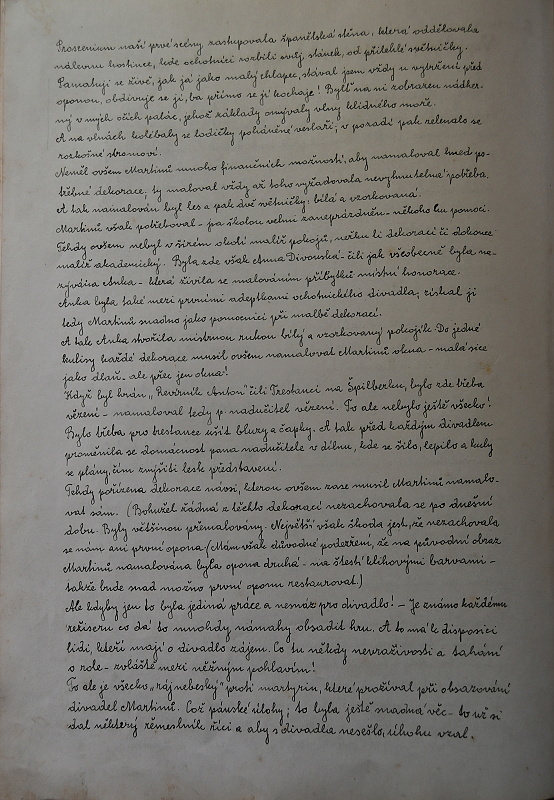 Proscenium naší prvé scény zastupovala španělská stěna, která oddělovala
nálevnu hostince, kde ochotníci rozbili svůj stánek, od přilehlé světničky.
Pamatuji se živě, jak já jako malý chlapec, stával jsem vždy u vytržení před
oponou, obdivuje se jí, ba přímo se jí kochaje! Bylť na ní zobrazen nádher-
ný v mých očích palác, jehož základy omývaly vlny klidného moře.
A na vlnách kolébaly se lodičky poháněné veslaři; v pozadí pak zelenalo se
rozkošné stromoví.
Neměl ovšem Martinů mnoho finančních možností, aby namaloval hned po-
třebné dekorace, ty maloval vždy až toho vyžadovala nevyhnutelná potřeba.
A tak namalován byl les a pak dvě světničky: bílá a vzorkovaná.
Martinů však potřeboval - jsa školou velmi zaneprázdněn - někoho ku pomoci.
Tehdy ovšem nebyl v širém okolí malíř pokojů, neřku li dekorací či dokonce
malíř akademický. Byla zde však Anna Divouská - čili jak všeobecně byla na-
zývána Anka - která živila se malováním příbytků místní honorace.
Anka byla také mezi prvními adeptkami ochotnického divadla, získal ji
tedy Martinů snadno jako pomocnici při malbě dekorací.
A tak Anka stvořila mistrnou rukou bílý a vzorkovaný pokojík. Do jedné
kulisy každé dekorace musil ovšem namalovat Martinů okna - malá sice
jako dlaň - ale přec jen okna!
Když byl hrán "Revírník Anton" čili Trestanci na Špilberku, bylo zde třeba
vězení - namaloval tedy p. nadučitel vězení. To ale nebylo ještě všecko!
Bylo třeba pro trestance ušít bluzy a čapky. A tak před každým divadlem
proměnila se domácnost pana nadučitele v dílnu, kde se šilo, lepilo a kuly
se plány, čím zvýšiti lesk představení.
Tehdy pořízena dekorace návsi, kterou ovšem zase musil Martinů namalo-
vat sám. (Bohužel žádná z těchto dekorací nezachovala se po dnešní
dobu. Byly většinou přemalovány. Největší však škoda jest, že nezachovala
se nám ani první opona - (Mám však důvodné podezření, že na původní obraz
Martinů namalována byla opona druhá - na štěstí klihovými barvami -
takže bude snad možno první oponu restaurovat.)
Ale kdyby jen to byla jediná práce a nesnáz pro divadlo! - Je známo každému
režiseru co dá to mnohdy námahy obsadit hru. A to má k disposici
lidi, kteří mají o divadlo zájem. Co tu někdy nevraživosti a tahání
o role - zvláště mezi něžným pohlavím!
To ale je všecko "ráj nebeský" proti martyriu, které prožíval při obsazování
divadel Martinů. Což pánské úlohy; to byla ještě snadná věc - to už si
dal některý řemeslník říci a aby s divadla nesešlo, úlohu vzal.